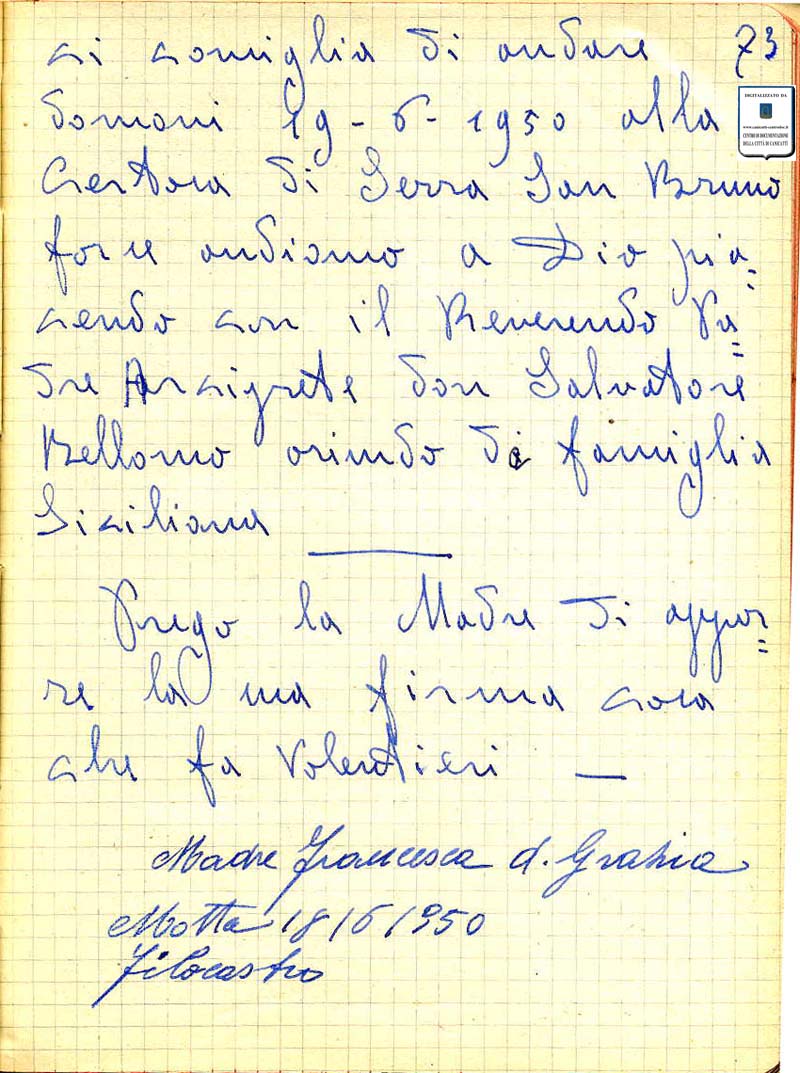 ci consiglia di andare 73
domani 19-6-1950 alla
Certosa di Serra San Bruno
forse andiamo a Dio pia=
cendo con il Reverendo Pa=
dre Arciprete don Salvatore
Bellomo oriundo di famiglia
Siciliana
Prego la Madre di appor=
re la sua firma cosa
che fa volentieri —
Madre Francesca d. Grazia
Motta 18/6/950
Filocastro
DIGITALIZZATO DA
www.canicatti-centrodoc.it
CENTRO DI DOCUMENTAZIONE
DELLA CITTÀ DI CANICATTÌ